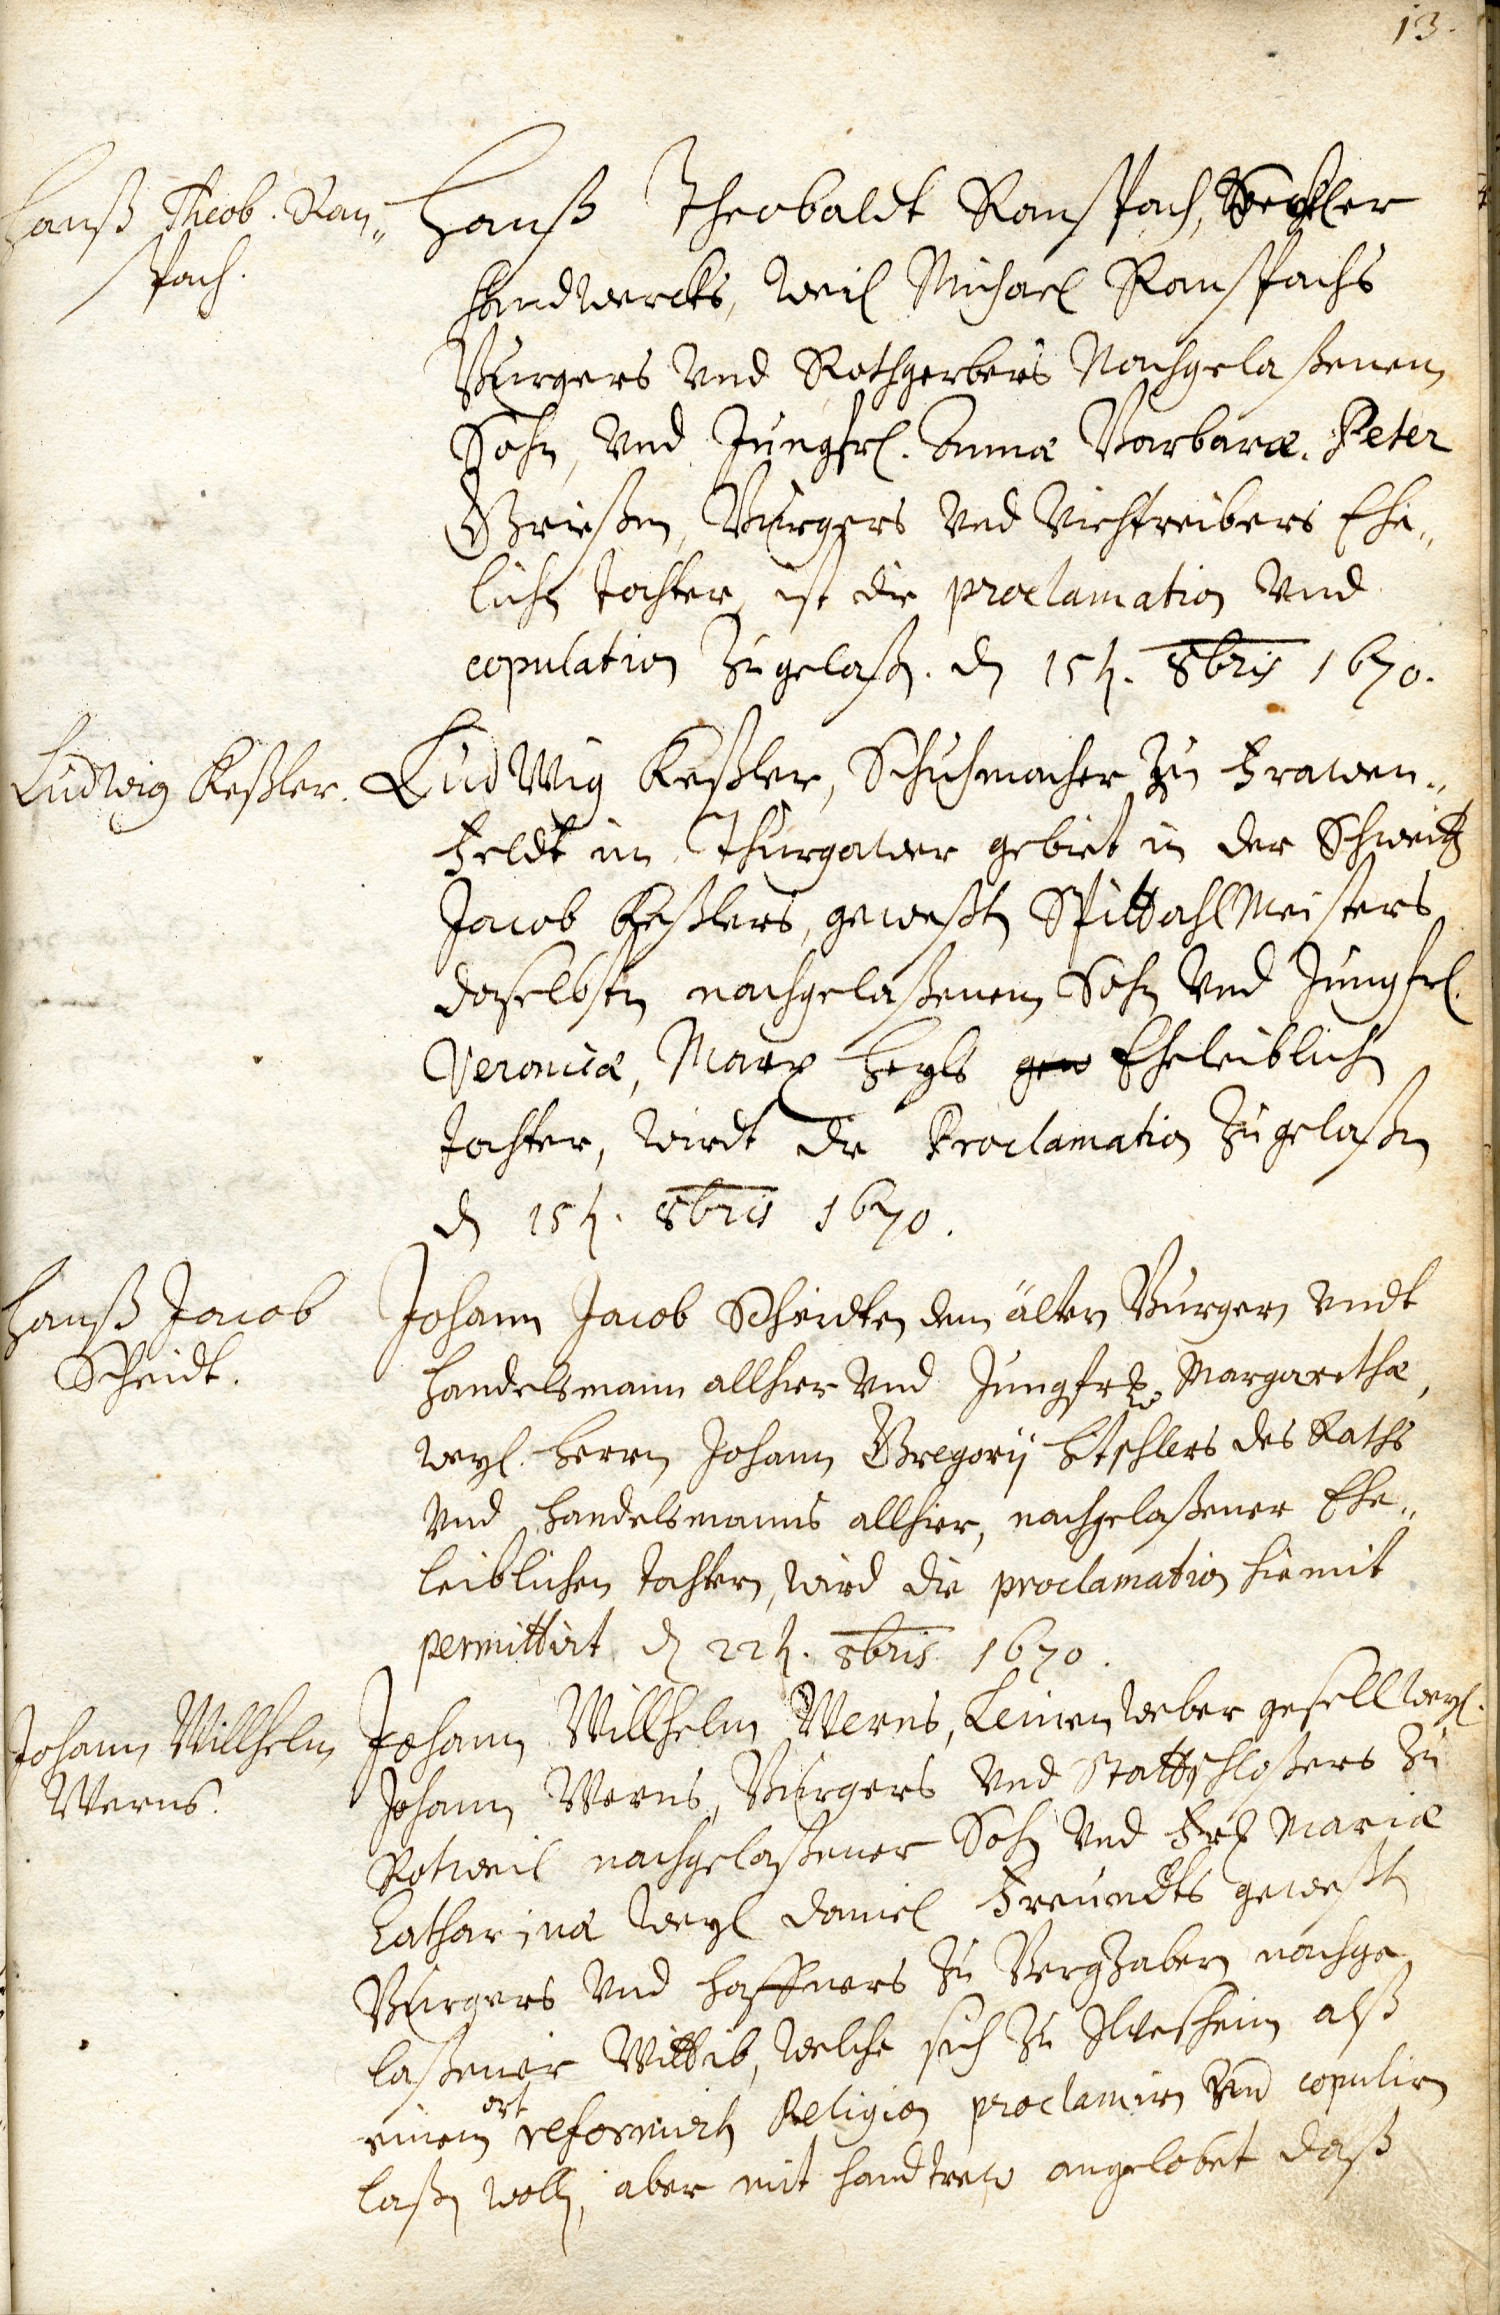 13.
Hanß Theob. Ran„
spach.
Hanß Theobaldt Ranspach, Seckler
Handwercks, weil Michael Ranspachs
Burgers vnd Rothgerbers Nachgelaßenem
Sohn, vnd Jungfrl. Annæ Barbaræ. Peter
Grießen, Burgers vnd Viehtreibers Ehe„
lichn tochter, ist die proclamation vnd
copulation Zugelaßn. dn 15t. 8bris 1670.
Ludwig Keßler.
Ludwig Keßler, Schuhmacher Zu Frawen„
Feldt im Thurgawer gebiet in der Schweitz
Jacob Keßlers, geweßtn SpittahlMeisters
daselbstn nachgelaßenem Sohn vnd Jungfrl.
Veronicæ, Marx Heyls gew Eheleiblichn
tochter, wirdt die Proclamation Zugelaßn
dn 15t. 8bris 1670.
Hanß Jacob
Scheidt.
Johann Jacob Scheidten dem ältern Burgern vndt
Handelsmann allhier vnd Jungfr. Margarethæ,
weyl. Herrn Johann Gregorij Hitschlers des Raths
vnd Handelsmanns allhier, nachgelaßener Ehe„
leiblichen tochtern, wird die proclamation hiemit
permittirt dn 22t. 8bris 1670.
Johann Willhelm
Werns.
Johann Willhelm Werns, Leinenweber gesell weyl.
Johann Werns, Burgers vnd Stattschloßers Zu
Rotweil nachgelaßener Sohn vnd Fr. Mariæ
Catharinæ weyl Daniel Freundts geweßtn
Burgers vnd Haffners Zu BergZabern nachge
laßener Wittib, welche sich Zu Ilvesheim alß
einem ort reformirtn Religion proclamirn vnd copulirn
laßn wolln, aber mit handtrew angelobet daß